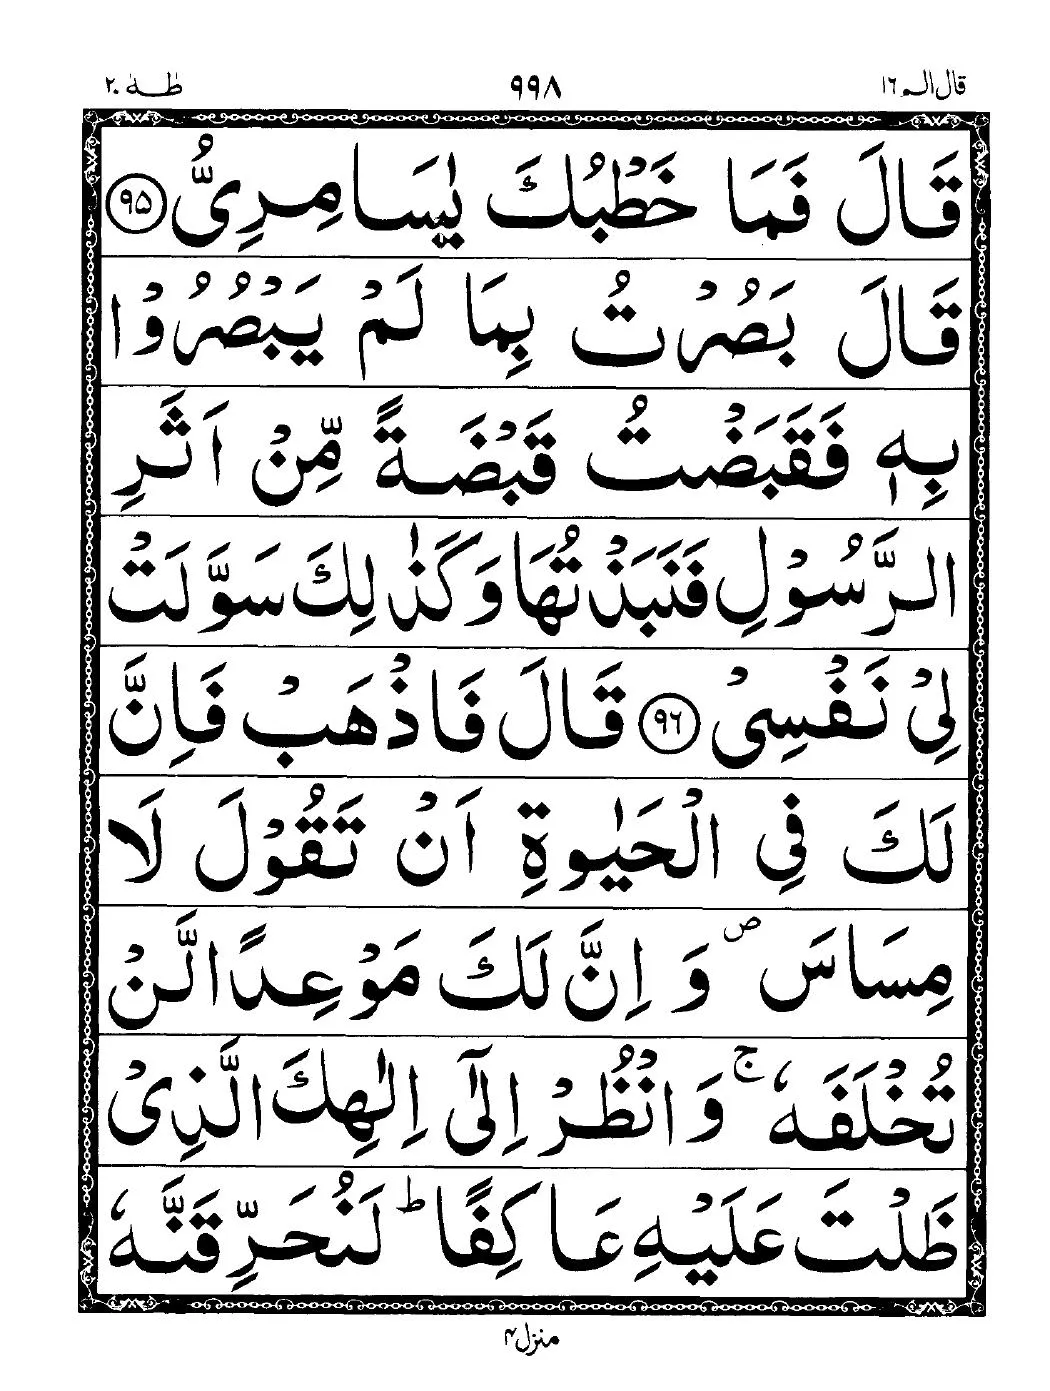 قال الم ١٦ ٩٩٨ طٰهٰ ٢٠
قَالَ فَمَا خَطْبُكَ يٰسَامِرِيُّ ٩٥
قَالَ بَصُرْتُ بِمَا لَمْ يَبْصُرُوْا
بِهٖ فَقَبَضْتُ قَبْضَةً مِّنْ اَثَرِ
الرَّسُوْلِ فَنَبَذْتُهَا وَكَذٰلِكَ سَوَّلَتْ
لِيْ نَفْسِيْ ٩٦ قَالَ فَاذْهَبْ فَاِنَّ
لَكَ فِي الْحَيٰوةِ اَنْ تَقُوْلَ لَا
مِسَاسَ ۪ وَ اِنَّ لَكَ مَوْعِدًا الَّنْ
تُخْلَفَهٗ ۚ وَ انْظُرْ اِلٰٓى اِلٰهِكَ الَّذِيْ
ظَلْتَ عَلَيْهِ عَاكِفًا ؕ لَنُحَرِّقَنَّهٗ
منزل ۴